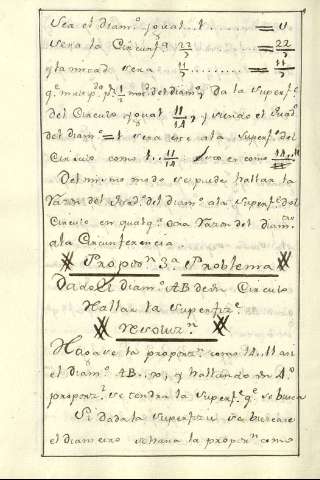 Sea el diam.º igual..1........ = 1
Sera la Circunf.ª 22/7 ........ = 22/7
y la mitad sera 11/7 ........ = 11/7
q.e mult.do p.r 1/2 mit.d del diam.º, Da la superf.e
del Circulo igual 11/14, y siendo el Quad.º
del diam.º = 1 sera este ala Superf.e del
Circulo como 1..11/14 como 14..11
Del mismo modo se puede hallar la
Razon del Quad.º del diam.º ala Superf.e del
Circulo en qualq.ª otra Razon del diam.tro
ala Circunferencia
Propos.n 3.ª Problema
Dado el diam.º AB de un Circulo
Hallar la Superfiz.e
Resoluz.n
Hagase la proporz.n como 14..11 asi
el diam.º AB.. , y hallando un 4.º
proporz.l se tendra la Superf.e q.e se busca
Si dada la Superficie se buscare
el diametro se hara la propor.n como